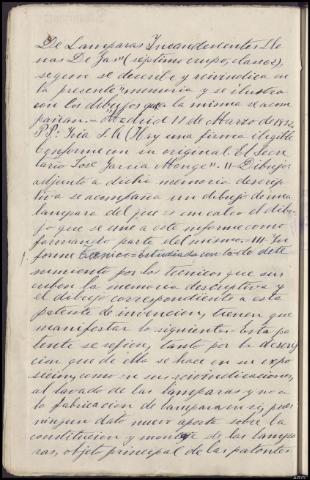 De Lamparas Incandescentes Lle
nas De Gas" (séptimo grupo, clase),
segun se describe y reivindica en
la presente memoria y se ilustra
con los dibujos que a la misma se acom
pañan.- Madrid 11 de Marzo de 1932.
P.P.: una firma ilegible
Conforme con su original. El Secre
tario José García Monge".- II- Dibujo-
adjunto a dicha memoria descrip
tiva se acompaña un dibujo de una
lampara del que es un calco el dibu-
jo que se une a este informe como
formando parte del mismo.- III. In
forme Técnico= Estudiada con todo dete
nimiento por los técnicos que sus
criben la memoria descriptiva y
el dibujo correspondiente a esta
patente de invencion, tienen que
manifestar lo siguiente= Esta pa
tente se refiere, tanto por la descrip
cion que de ella se hace en su expo
sicion, como en sus reivindicaciones,
al lavado de las lamparas y no a
la fabricacion de lamparas en si, pues
ningun dato nuevo aporta sobre la
constitucion y montaje de las lampa
ras, objeto principal de las patentes